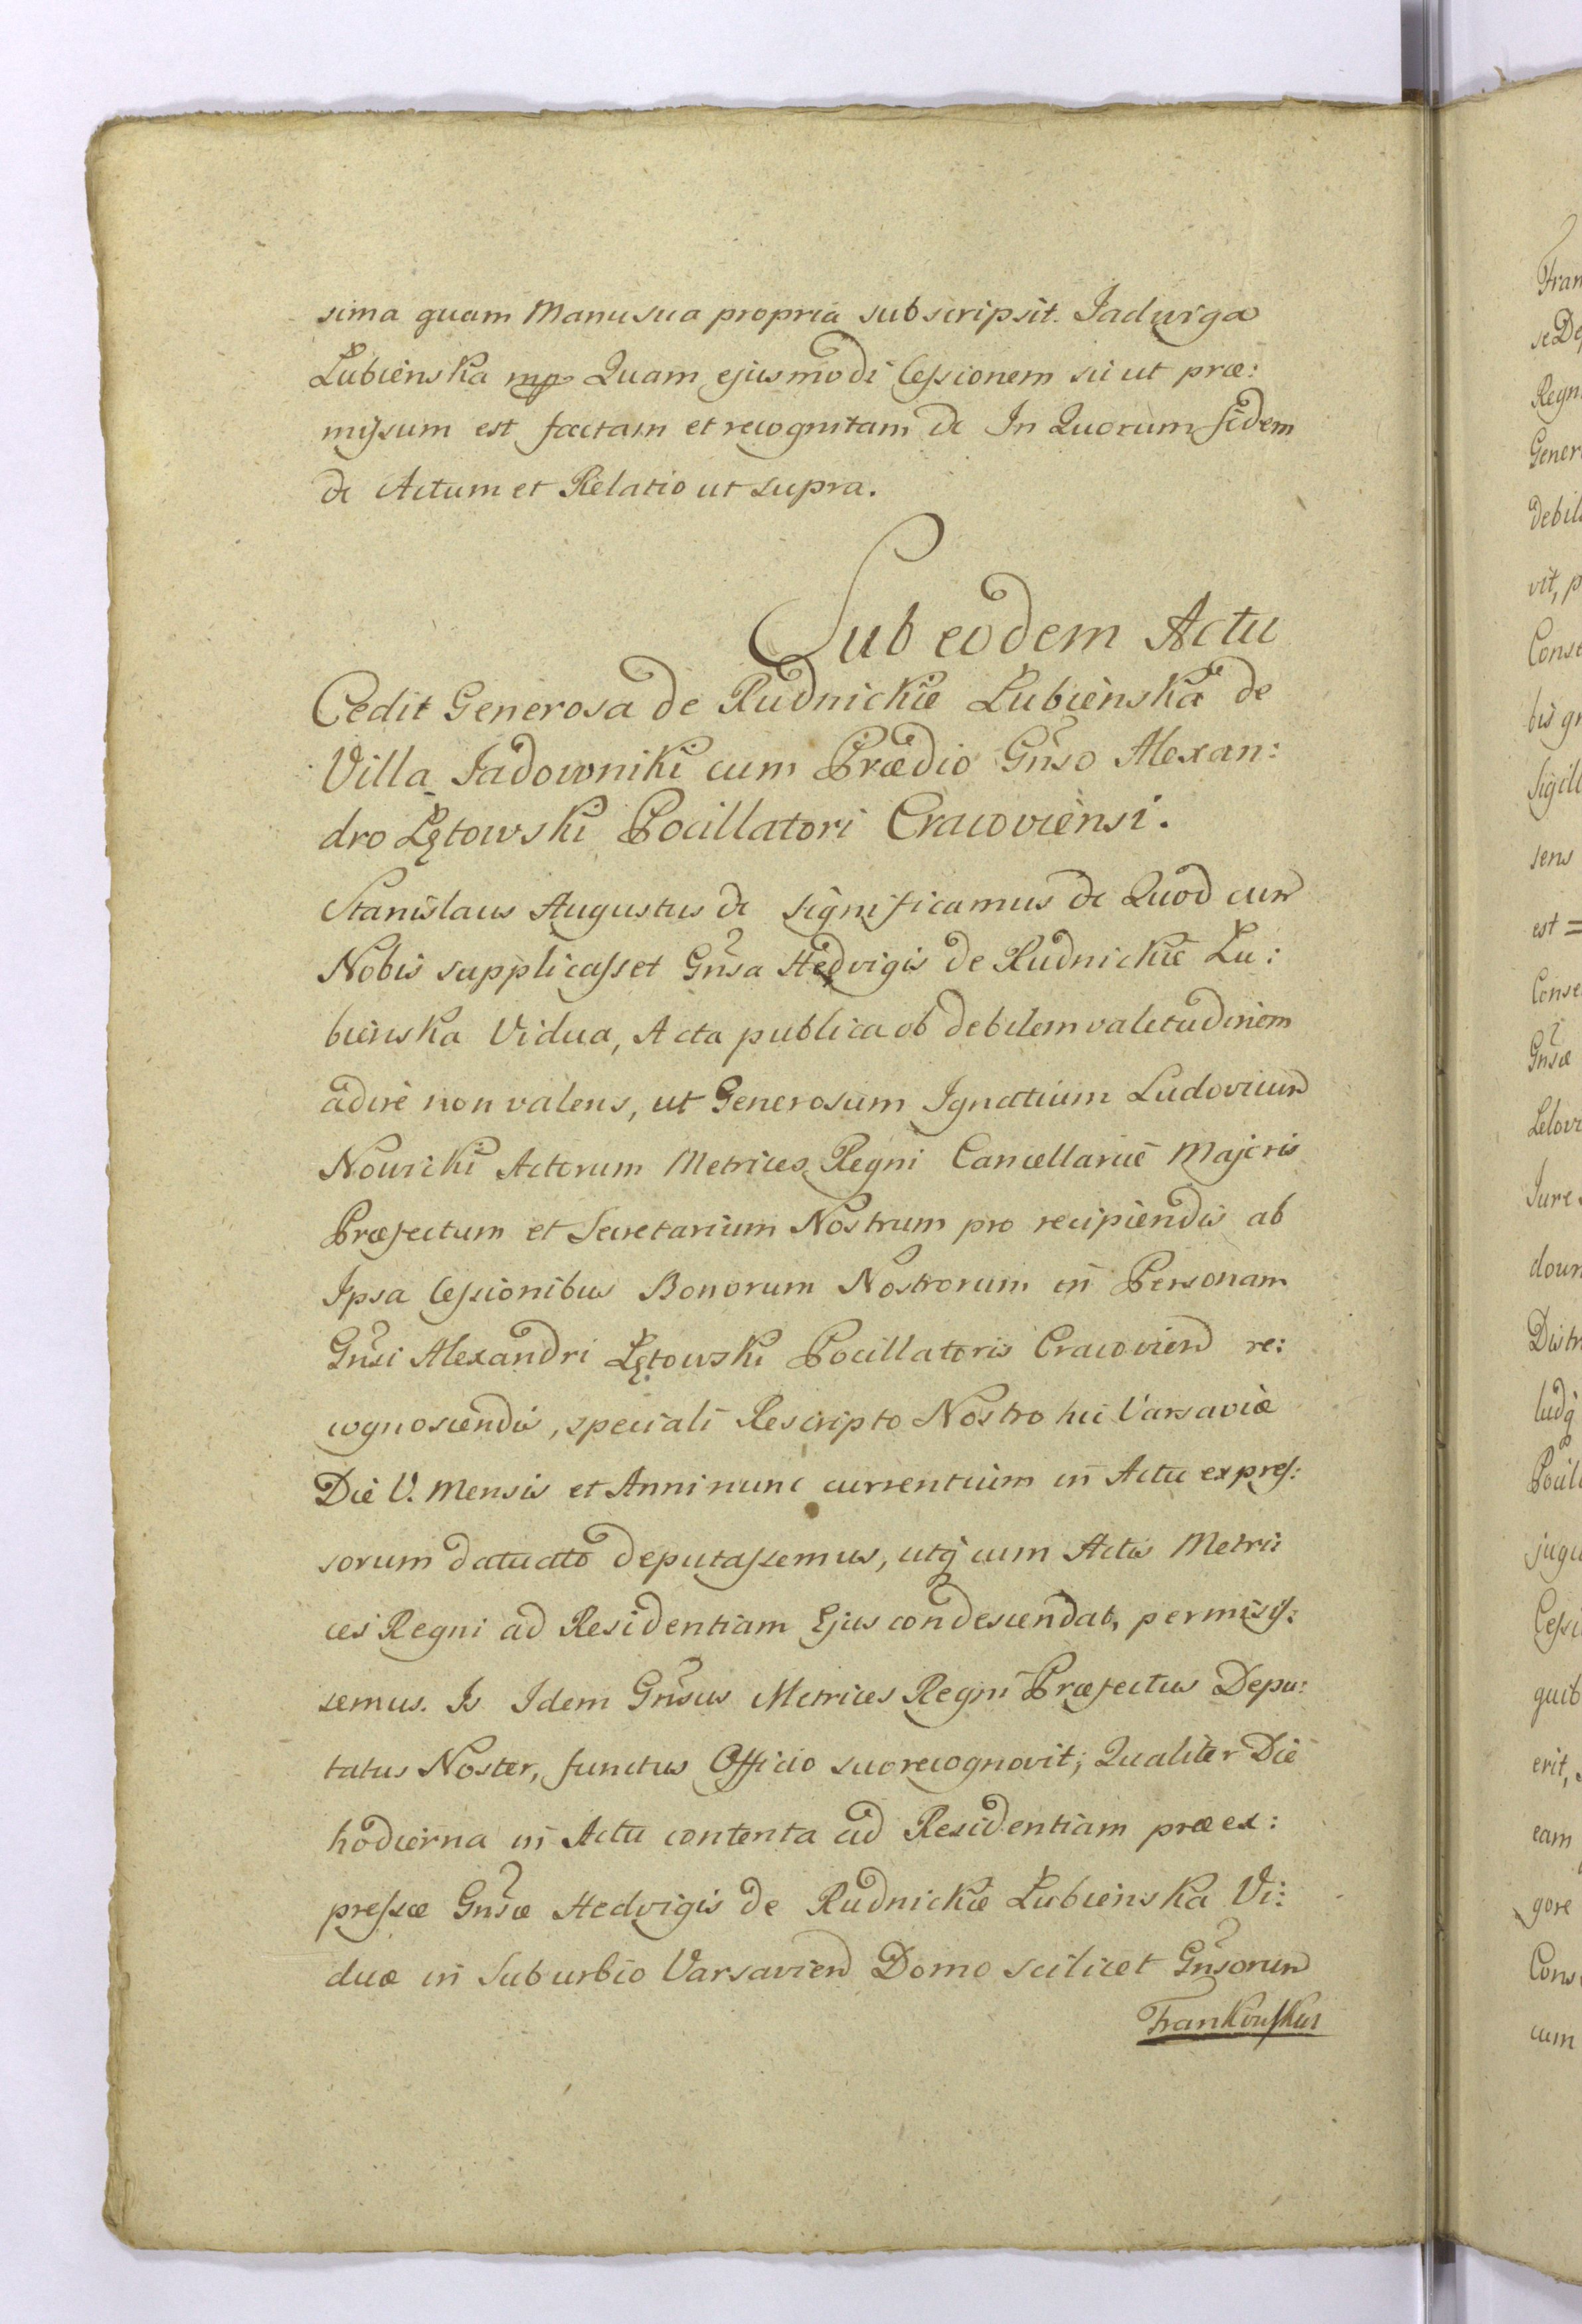 sima quam Manu sua propria subscripsit. Jadwiga
Łubienska mp Quam ejusmodi Cessionem sic ut præ:
missum est factam et recognitam &c In Quorum fidem
&c Actum et Relatio ut supra.
Sub eodem Actu
Cedit Generosa de Rudnickie Łubienska de
Villa Jadowniki cum Prædio Gnso Alexan:
dro Łętowski Pocillatori Cracoviensi.
Stanislaus Augustus &c significamus &c Quod cum
Nobis supplicasset Gnsa Hedvigis de Rudnickie Łu:
bienska Vidua, Acta publica ob debilem valetudinem
adire non valens, ut Generosum Ignatium Ludovicum
Nowicki Actorum Metrices Regni Cancellariæ Majoris
Præfectum et Secretarium Nostrum pro recipiendis ab
Ipsa Cessionibus Bonorum Nostrorum in Personam
Gnsi Alexandri Łętowski Pocillatoris Cracovien re:
cognoscendis, speciali Rescripto Nostro hic Varsaviæ
Die V. Mensis et Anni nunc currentium in Actu expres:
sorum datu atto deputassemus, utq cum Actis Metri:
ces Regni ad Residentiam Ejus condescendat, permisis:
semus. Is Idem Gnsus Metrices Regni Præfectus Depu:
tatus Noster, functus Officio suo recognovit; Qualiter Die
hodierna in Actu contenta ad Residentiam præex:
pressæ Gnsæ Hedvigis de Rudnickie Łubienska Vi:
duæ in Suburbio Varsavien Domo scilicet Gnsorum
Frankowskus